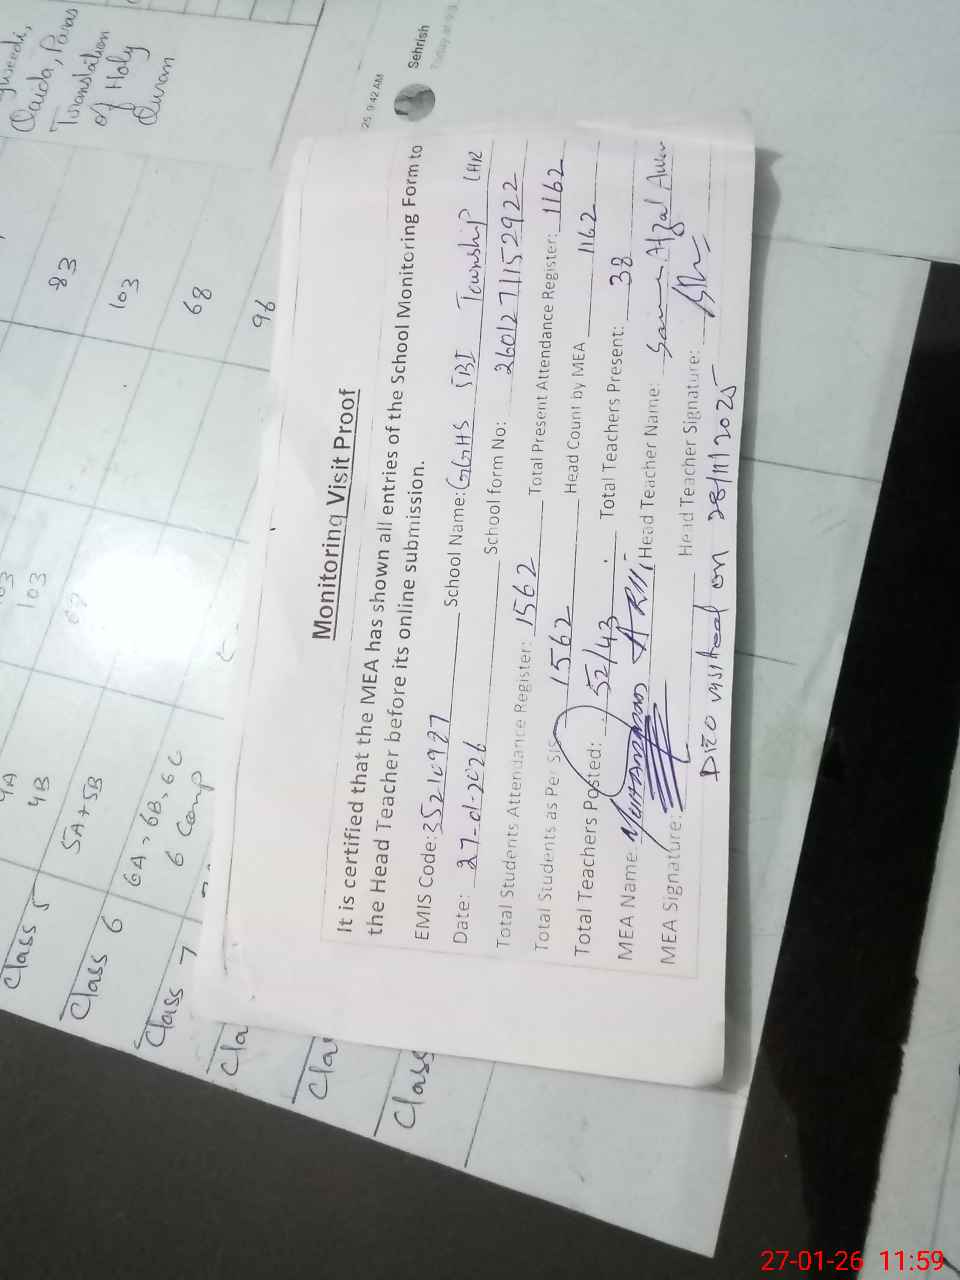 Qaida, Paras
Translation
of Holy
Quram
83
103
68
96
103
103
4A
4B
Class 5
5A+5B
Class 6
6A, 6B, 6C
6 Comp
Class 7
Cla
Cla
Class
25, 9:42 AM
Sehrish
Monitoring Visit Proof
It is certified that the MEA has shown all entries of the School Monitoring Form to
the Head Teacher before its online submission.
EMIS Code: 35210927 School Name: GGHS 5BI Township LHR
Date: 27-01-2026 School form No: 2601271152922
Total Students Attendance Register: 1562 Total Present Attendance Register: 1162
Total Students as Per SIS 1562 Head Count by MEA 1162
Total Teachers Posted: 52/43 Total Teachers Present: 38
MEA Name: Head Teacher Name: Afzal
MEA Signature: Head Teacher Signature:
on 28/11/2025
27-01-26 11:59